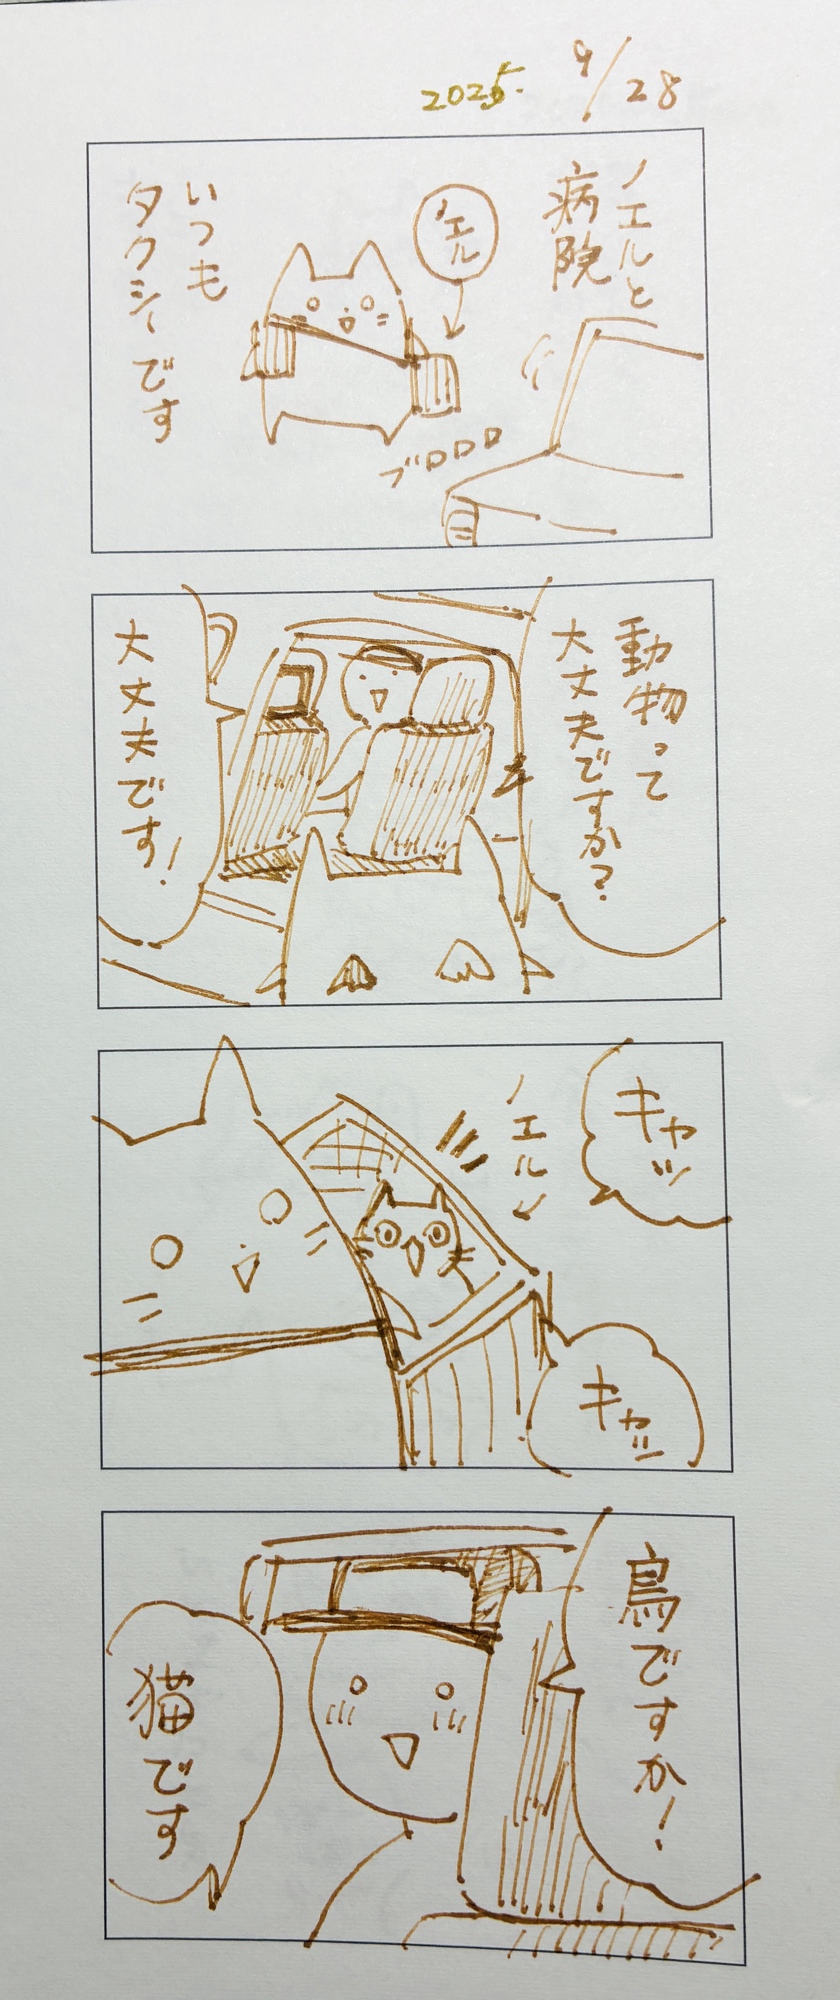 2025. 9/28
ノエルと
病院
ノエル
いつも
タクシーです
ブロロロ
動物って
大丈夫ですか?
大丈夫です!
キャッ
ノエル
キャッ
鳥ですか!
猫です